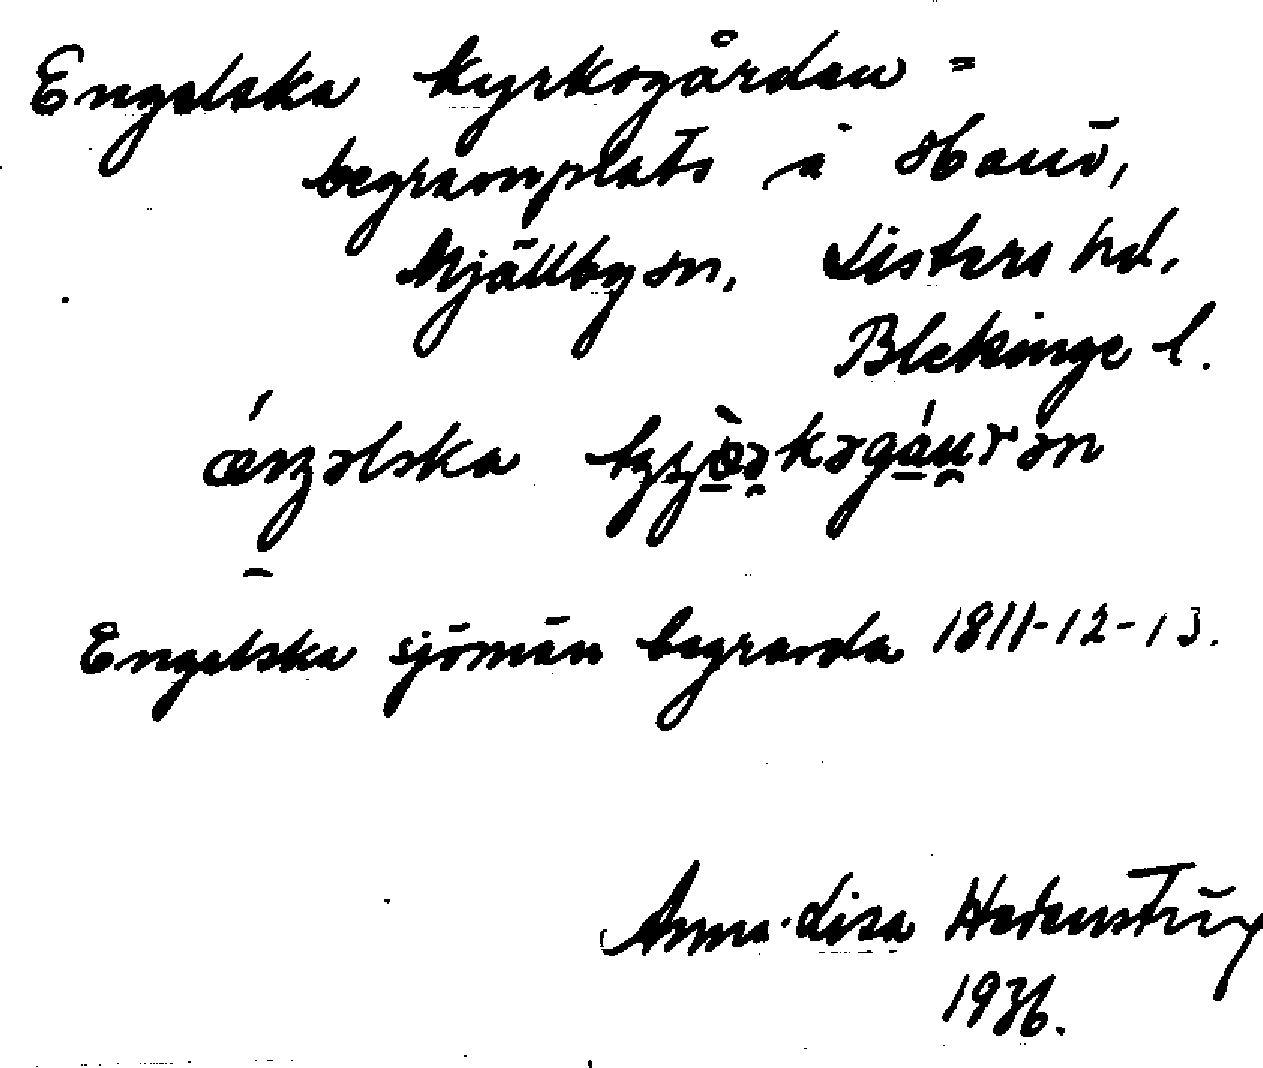 Engelska kyrkogården =
begravnplats å Hanö,
Mjällby sn, Listers hd.
Blekinge l.
Engelska sjömän begravda 1811-12-13.
Anna-Lisa
1936.